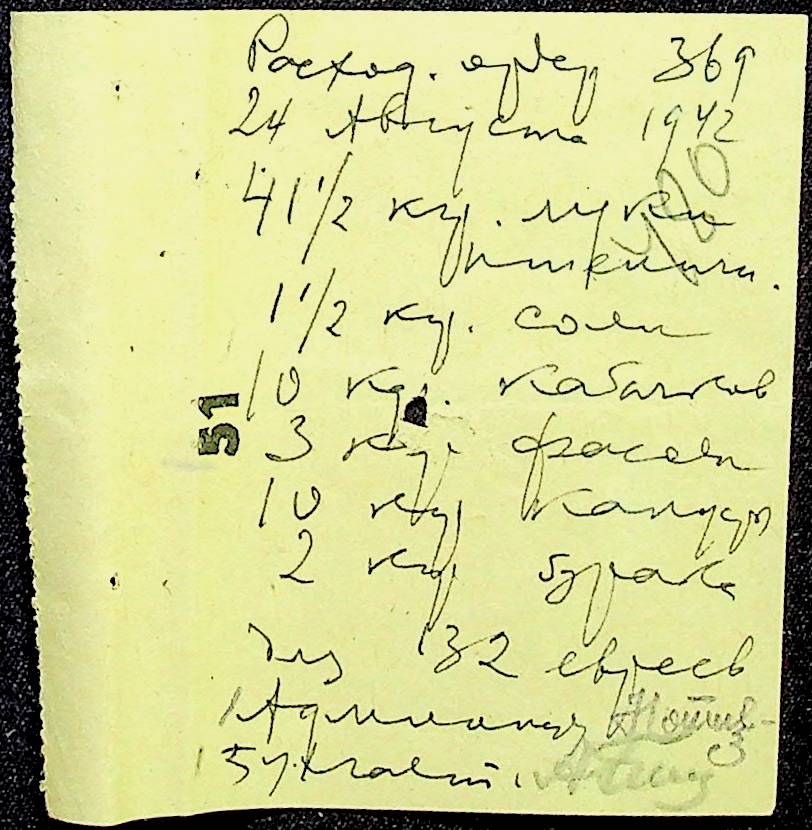 Расход. ордер 369
24 Августа 1942
420
41 1/2 кгр. муки
пшеничн.
1 1/2 кгр. соли
10 кгр. кабачков
51
3 кгр фасоли
10 кгр капусты
2 кгр бурака
для 132 евреев
Администр
Бухгалт.